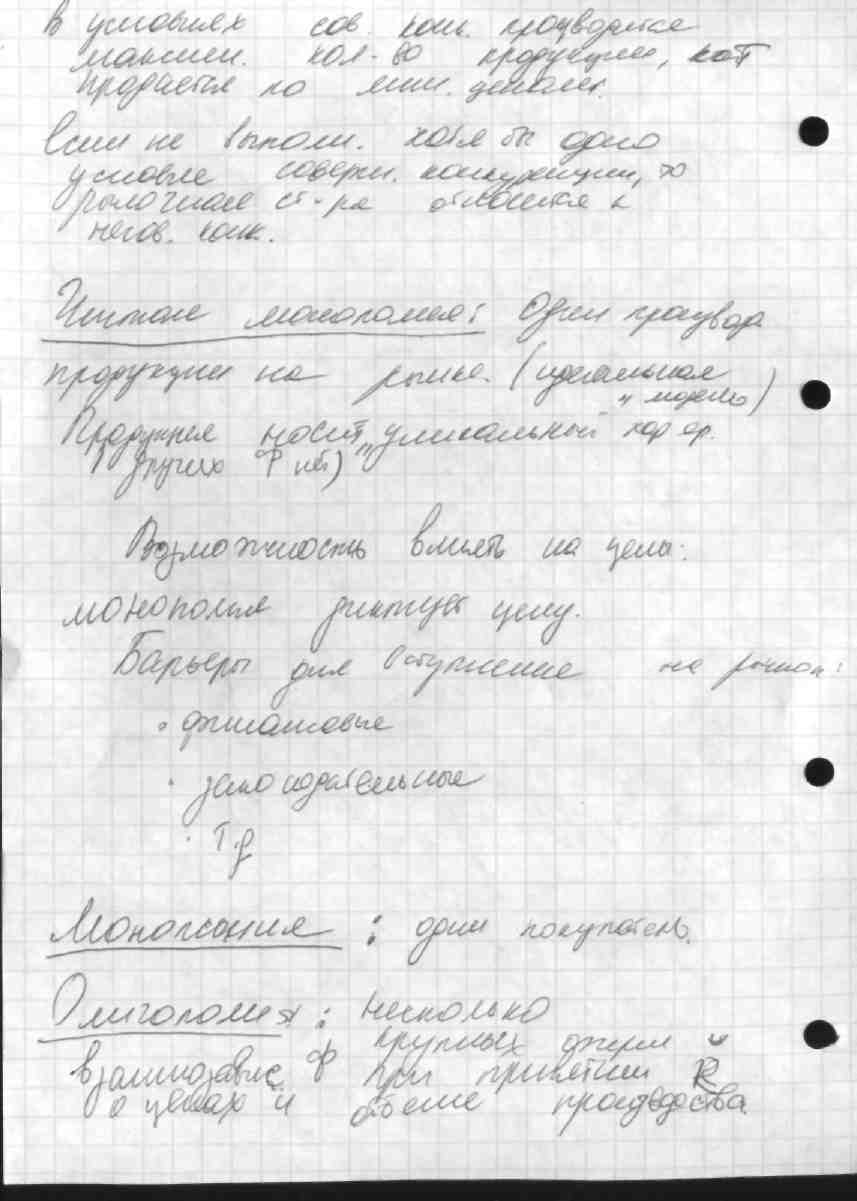 В условиях сов. конк. производится
максим. кол-во продукции, кот
продается по мин. ценам.
Если не выполн. хотя бы одно
условие соверш. конкуренции, то
рыночная ст-ра относится к
несов. конк.
Чистая монополия: Один производ
продукции на рынке. (идеальная
модель)
Продукция носит уникальный хар-ер.
других Ф нет)
Возможность влиять на цены:
монополия диктует цену.
Барьеры для вступления на рынок:
• финансовые
• законодательные
• Т.д
Монопсония : один покупатель.
Олигополия : несколько
крупных фирм и
взаимозавис. Ф при принятии R
о ценах и объеме производства